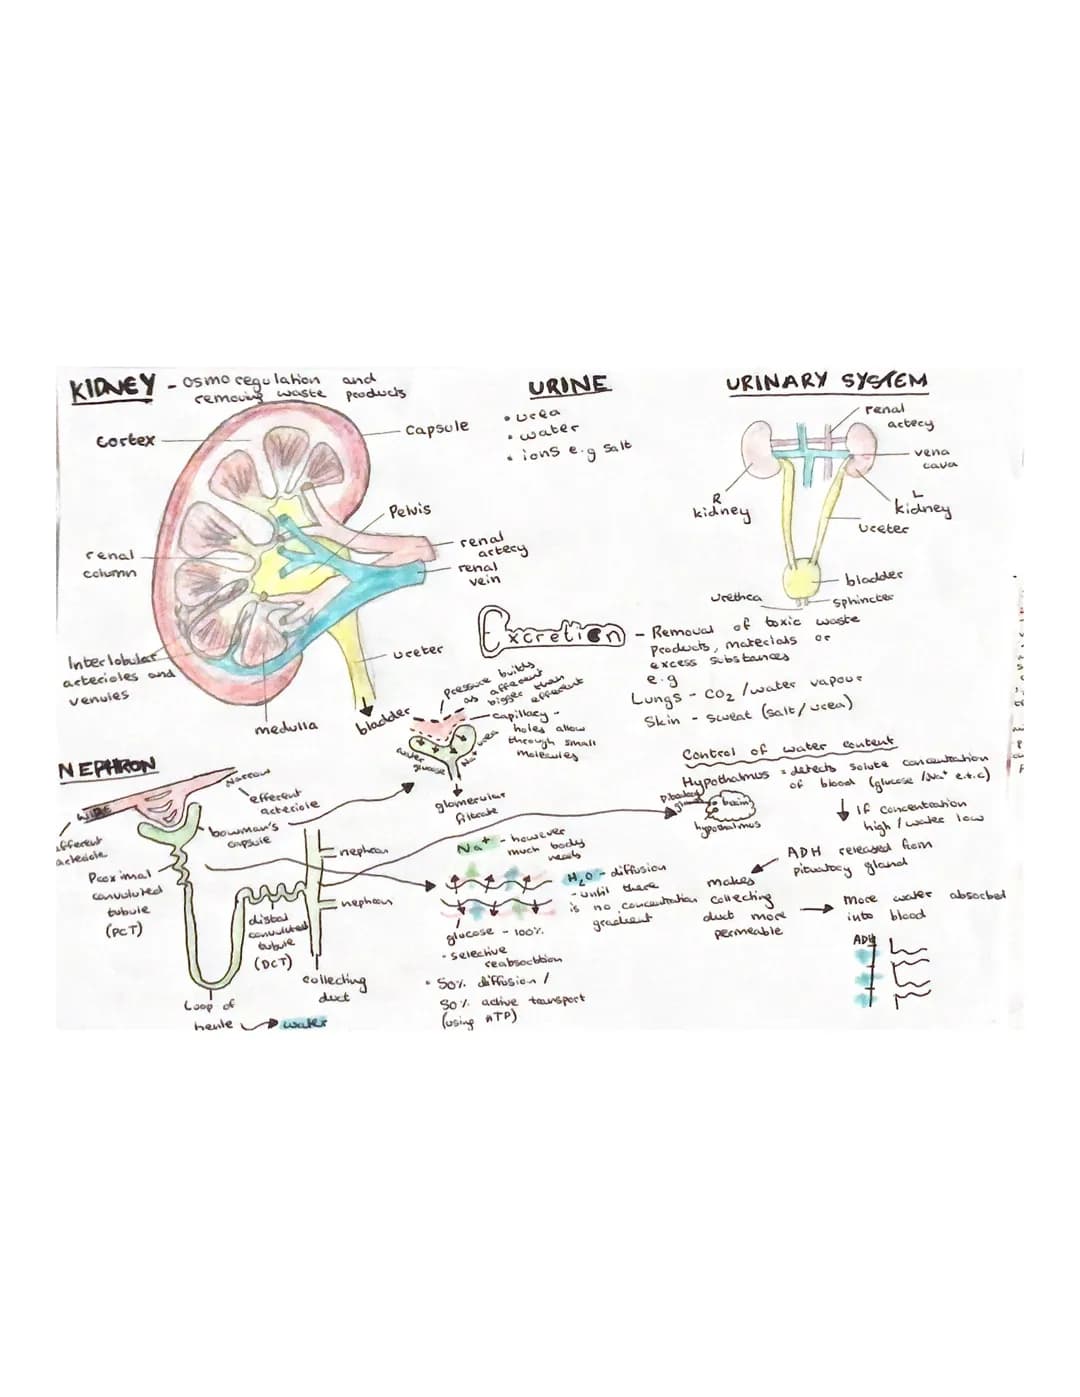 KIDNEY - osmoregulation and
removing waste products
cortex
Capsule
Pelvis
renal
artery
renal
vein
renal
column
Interlobular
arterioles and
venules
ureter
medulla
bladder
URINE
• urea
• water
• ions e.g salt
URINARY SYSTEM
renal
artery
vena
cava
R
kidney
L
kidney
ureter
bladder
urethra
sphincter
Excretion - Removal of toxic waste
products, materials or
excess substances
e.g
Lungs - CO2 / water vapour
Skin - sweat (salt/urea)
pressure builds
as afferent
bigger than
efferent
capillary -
holes allow
through small
molecules
water
glucose
Na+
urea
glomerular
filtrate
NEPHRON
Narrow
efferent
arteriole
WIDE
afferent
arteriole
bowman's
capsule
Proximal
convuluted
tubule
(PCT)
distal
convuluted
tubule
(DCT)
nephron
nephron
collecting
duct
Loop of
henle → water
Na+ - however
much body
needs
H2O - diffusion
- until there
is no concentration
gradient
glucose - 100%
- selective
reabsorbtion
• 50% diffusion /
50% active transport
(using ATP)
Control of water content
Hypothalmus = detects solute concentration
of blood (glucose /Na+ e.t.c)
pituatary
gland
brain
hypothalmus
↓ If concentration
high / water low
ADH released from
pituatory gland
makes
collecting
duct more
permeable
→ More water absorbed
into blood
ADH